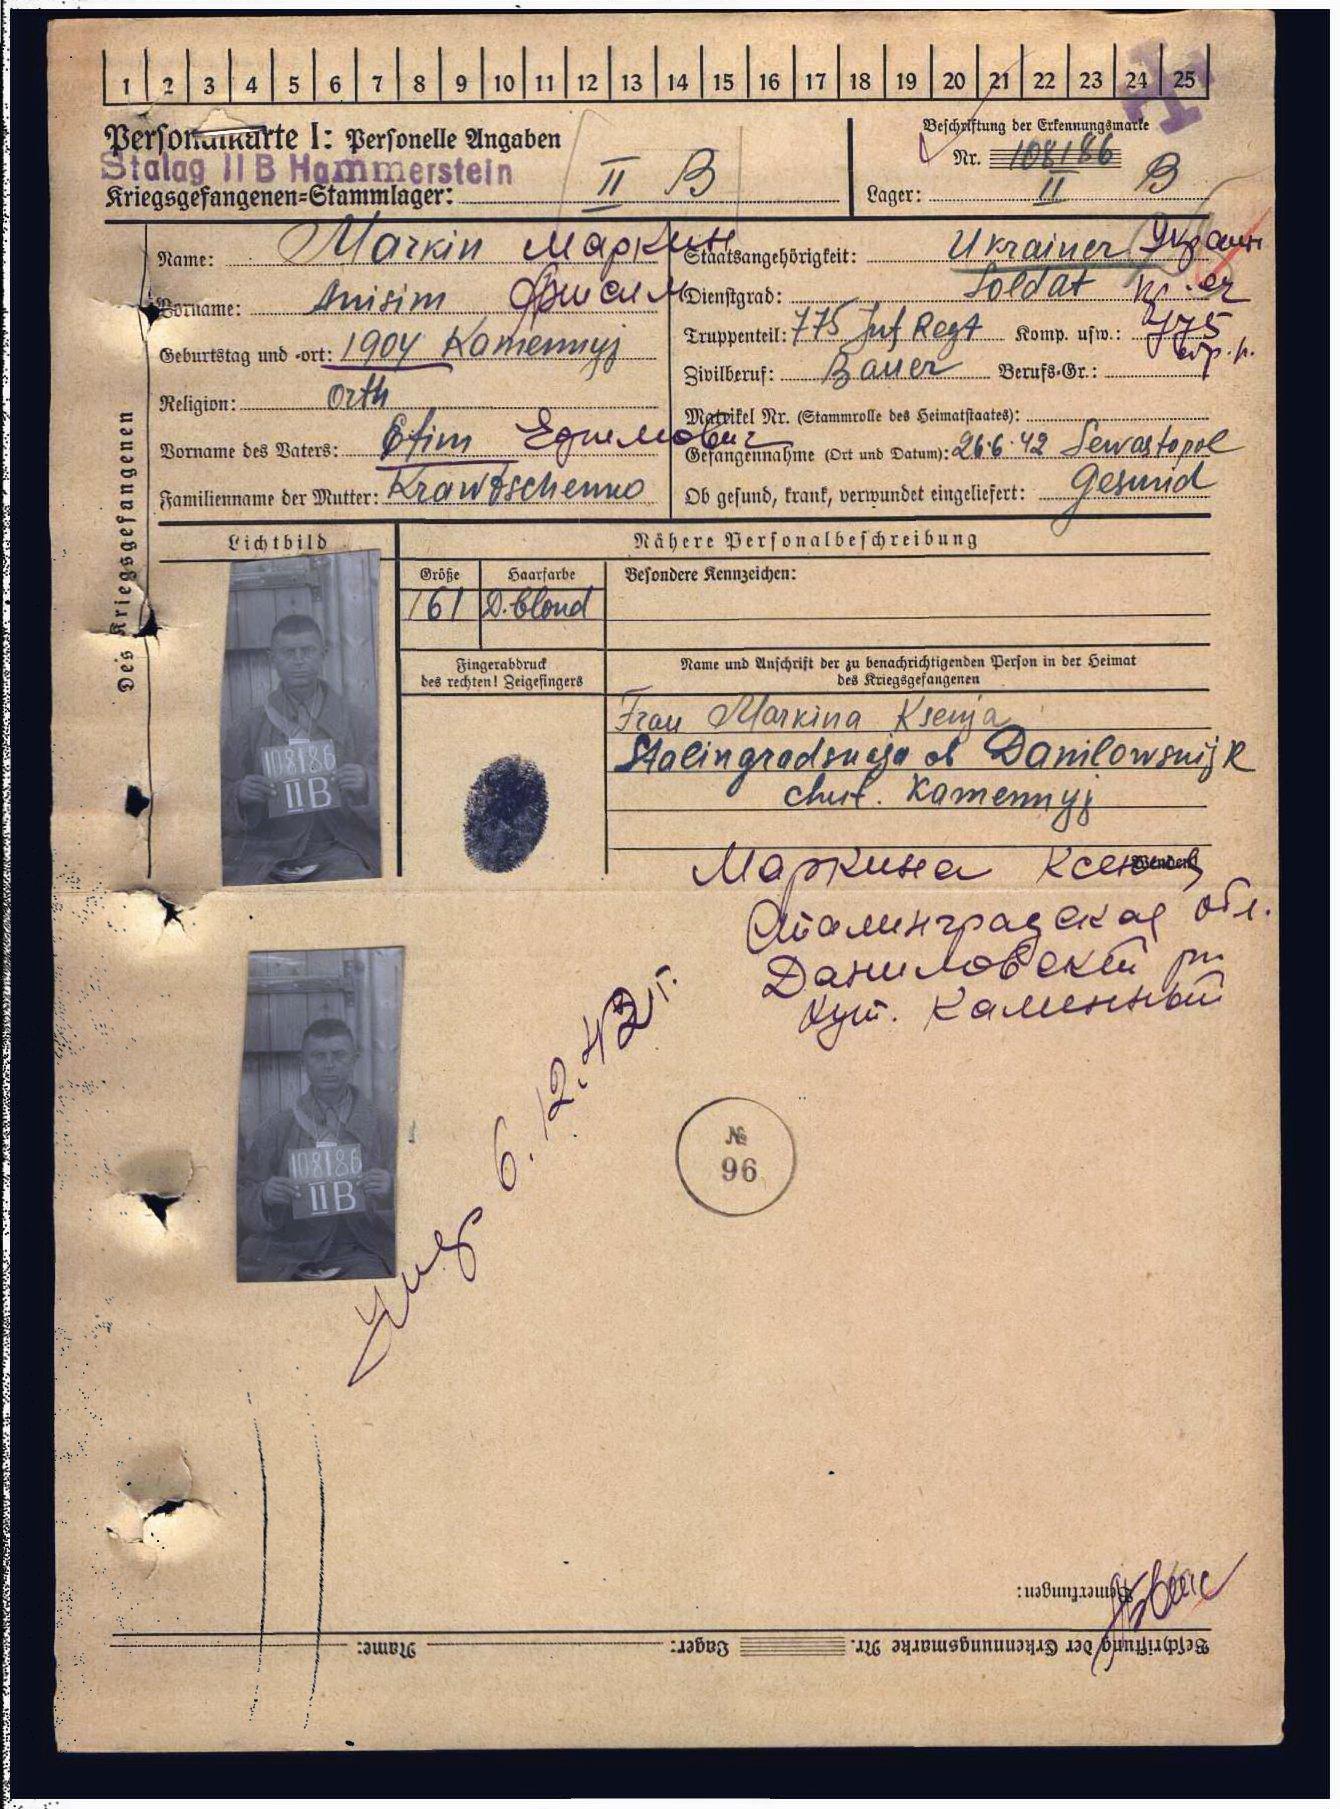 1 2 3 4 5 6 7 8 9 10 11 12 13 14 15 16 17 18 19 20 21 22 23 24 25
Personalkarte I: Personelle Angaben
Stalag II B Hammerstein
Kriegsgefangenen-Stammlager: II B
Beschriftung der Erkennungsmarke
Nr. 108186
Lager: II B
Des Kriegsgefangenen
Name: Markin Маркин
Vorname: Anisim
Geburtstag und -ort: 1904 Kamennyj
Religion: Orth
Vorname des Vaters: Efim Ефимович
Familienname der Mutter: Krawtschenko
Staatsangehörigkeit: Ukrainer Украин
Dienstgrad: Soldat кр-ец
Truppenteil: 775 Inf Regt Komp. usw.: 775
Zivilberuf: Bauer Berufs-Gr.:
Matrikel Nr. (Stammrolle des Heimatstaates):
Gefangennahme (Ort und Datum): 26.6.42 Sewastopol
Ob gesund, krank, verwundet eingeliefert: Gesund
Lichtbild
Nähere Personalbeschreibung
Größe Haarfarbe Besondere Kennzeichen:
161 D. blond
Fingerabdruck
des rechten! Zeigefingers
Name und Anschrift der zu benachrichtigenden Person in der Heimat
des Kriegsgefangenen
Frau Markina Ksenja
Stalingradskaja ob Danilowskij R
chut. Kamennyj
Wenden!
108186
II B
Маркина Ксения
Сталинградская обл.
Даниловский рн
хут. Каменный
108186
II B
Умер 6.12.42г.
№
96
Bemerkungen:
Beschriftung der Erkennungsmarke Nr. Lager: Name: